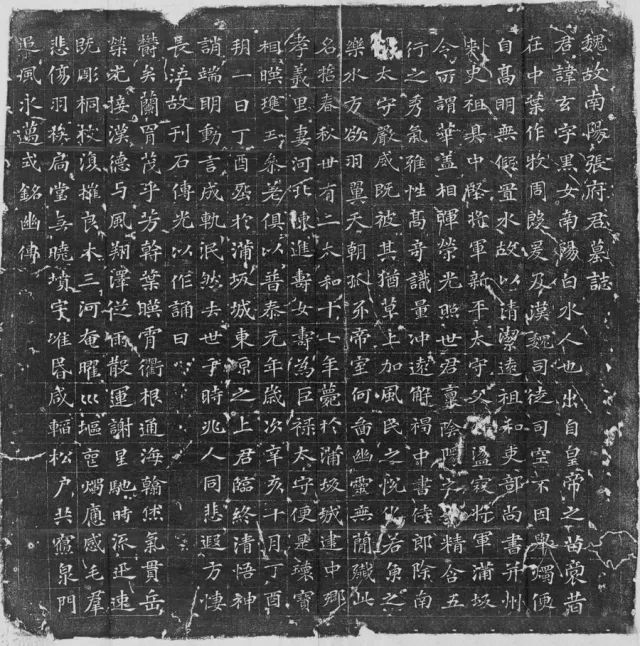 魏故南陽張府君墓誌
君諱玄字黑女南陽白水人也出自皇帝之苗裔昔
在中葉作牧周殷爰及漢魏司徒司空不因舉燭便
自高明無假置水故以清潔遠祖和吏部尚書并州
刾史祖具中堅將軍新平太守父盪寇將軍蒲坂
令所謂華蓋相暉榮光照世君稟陰陽之精含五
行之秀氣雅性高奇識量冲遠解褐中書侍郎除南
太守嚴威既被其猶草上加風民之悅化若魚之
樂水方欲羽翼天朝抓牙帝室何啚幽靈無簡殲此
名哲春秋卅有二太和十七年薨於蒲坂城建中鄉
孝義里妻河北陳進壽女壽為巨祿太守便是瓌寶
相暎瓊玉參差俱以普泰元年歲次辛亥十月丁酉
朔一日丁酉葬於蒲坂城東原之上君臨終清悟神
誚端明動言成軌泯然去世于時兆人同悲遐方悽
長泣故刊石傳光以作誦曰
鬱矣蘭胄茂乎芳幹葉暎霄衢根通海翰倐氣貫岳
榮光接漢德与風翔澤從雨散運謝星馳時流迅速
既彫桐枝復摧良木三河奄曜川堀寷燭痛感毛羣
悲傷羽族扃堂無曉墳宇唯昏咸輼松户共寢泉門
追風永邁式銘幽傳